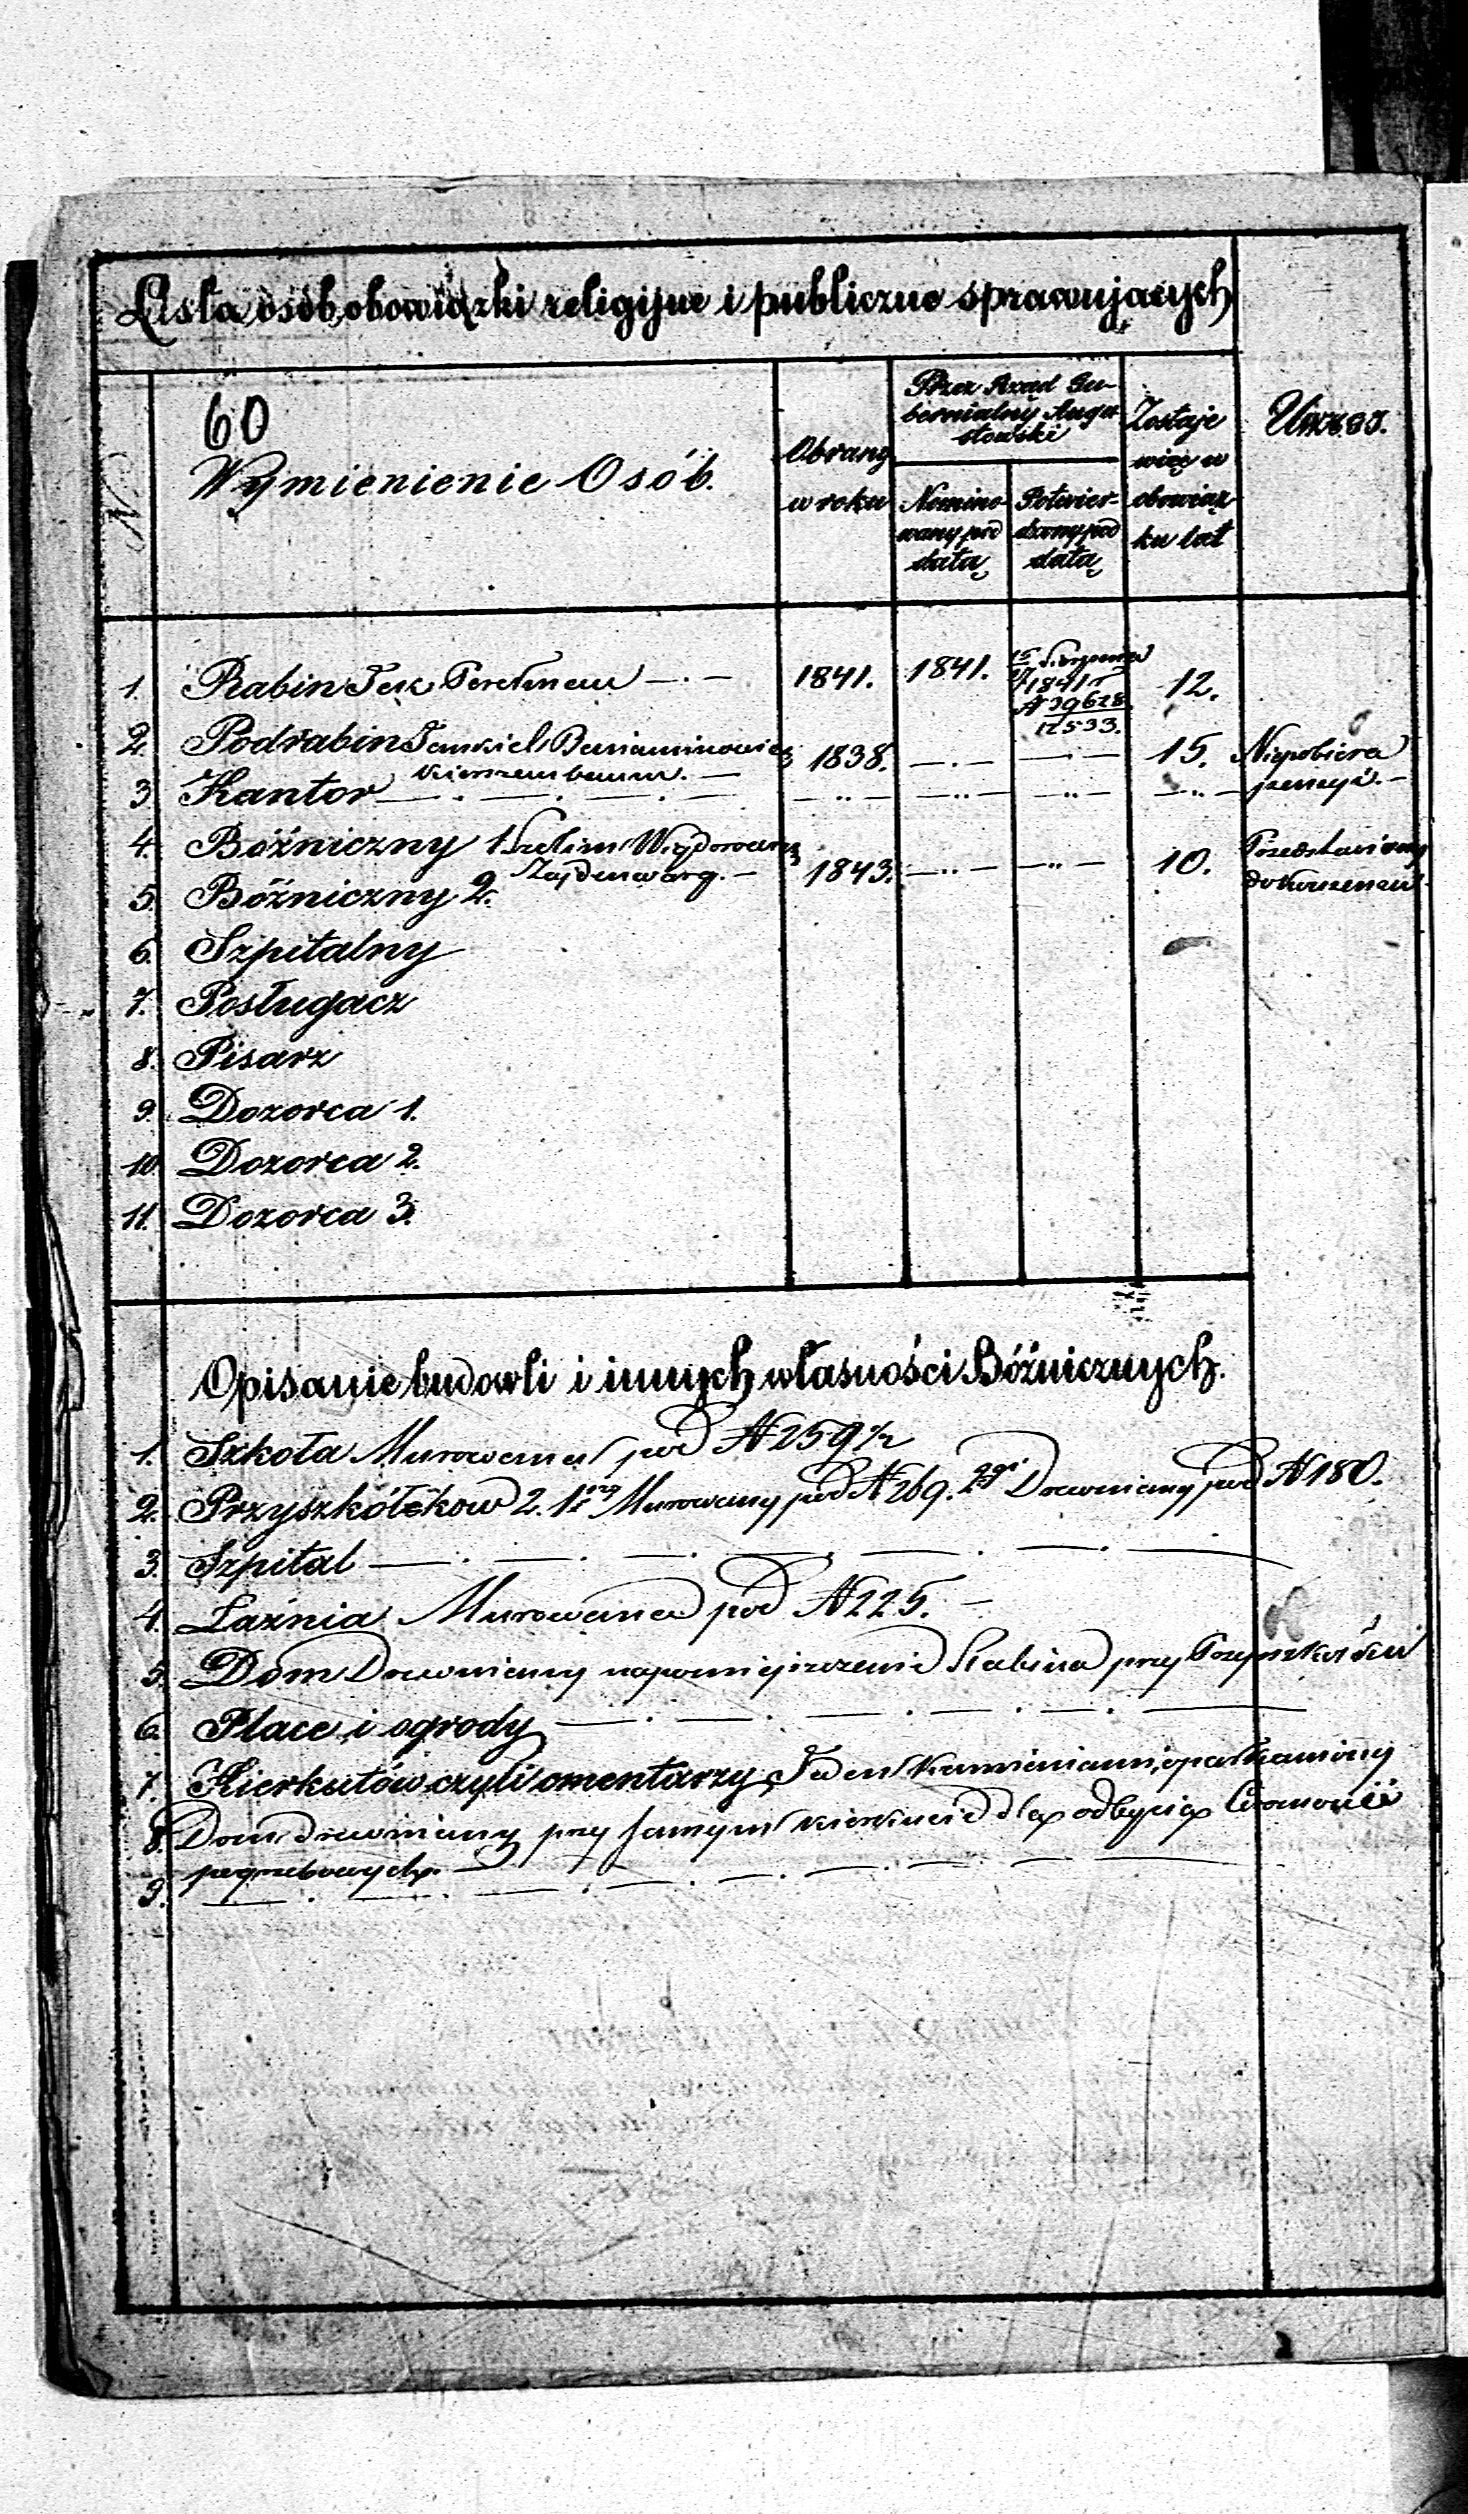 Lista osób obowiązki religijne i publiczne sprawujących
60
N
Wymienienie Osób.
Obrany w roku
Przez Rząd Gubernialny Augustowski
Nominowany pod datą
Potwierdzony pod datą
Zostaje więc w obowiązku lat
Uwagi.
1. Rabin Perelman —.— 1841. 1841. 15 Sierpnia 1841 r N 39628 12533. 12.
2. Podrabin Jankiel Beniaminowicz
Kierszenbaum. — 1838. —.— —.— 15. Niepobiera pensyi. —
3 Kantor —.—.—.—
4. Bóźniczny 1. Wigdorowicz
Zajdenwarg. — 1843. —..— —..— 10. Przedstawiony do
5. Bóźniczny 2.
6. Szpitalny
7. Posługacz
8. Pisarz
9. Dozorca 1.
10. Dozorca 2.
11. Dozorca 3.
Opisanie budowli i innych własności Bóźnicznych.
1. Szkoła Murowana pod N 259½
2. Przyszkółkow 2. 1szy Murowany pod N 269. 2gi Drewniany pod N 180.
3. Szpital —.—.—.—.—.—.—
4. Łaźnia Murowana pod N 225. —
5. Dom Drewniany na pomieszczenie Rabina przy Przyszkółku
6. Place i ogrody —.—.—.—.—.—
7. Kierkutów czyli cmentarzy Jeden kamieniami oparkaniony
8. Dom drewniany przy samym kierkucie dla odbycia Ceremonii
pogrzebowych. —
9. —.—.—.—.—.—.—